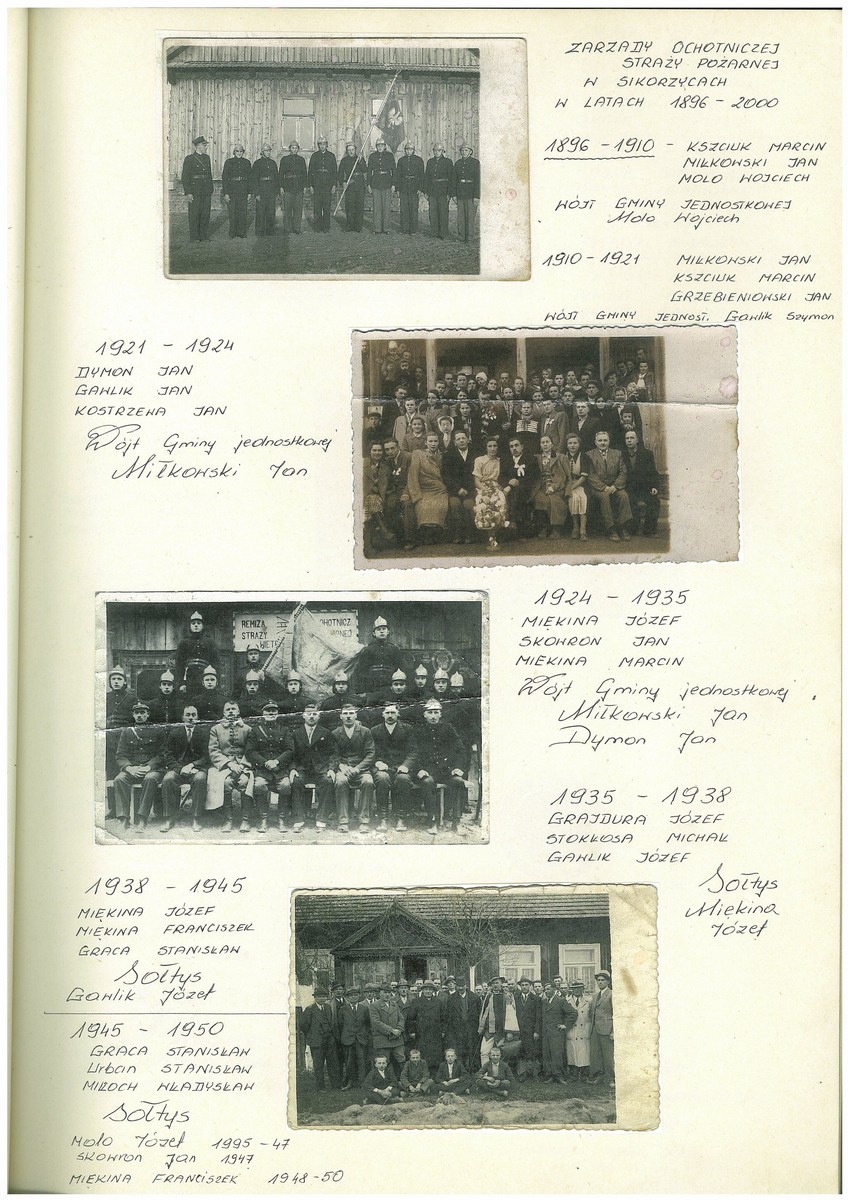 ZARZĄDY OCHOTNICZEJ
STRAŻY POŻARNEJ
W SIKORZYCACH
W LATACH 1896 - 2000
1896 - 1910 - KSZCIUK MARCIN
MIŁKOWSKI JAN
MOLO WOJCIECH
WÓJT GMINY JEDNOSTKOWEJ
Molo Wojciech
1910 - 1921 MIŁKOWSKI JAN
KSZCIUK MARCIN
GRZEBIENIOWSKI JAN
WÓJT GMINY JEDNOST. Gawlik Szymon
1921 - 1924
DYMON JAN
GAWLIK JAN
KOSTRZEWA JAN
Wójt Gminy jednostkowej
Miłkowski Jan
REMIZA OCHOTNICZ
STRAŻY
1924 - 1935
MIĘKINA JÓZEF
SKOWRON JAN
MIĘKINA MARCIN
Wójt Gminy jednostkowej
Miłkowski Jan
Dymon Jan
1935 - 1938
GRAJDURA JÓZEF
STOKŁOSA MICHAŁ
GAWLIK JÓZEF
Sołtys
Miękina
Józef
1938 - 1945
MIĘKINA JÓZEF
MIĘKINA FRANCISZEK
GRACA STANISŁAW
Sołtys
Gawlik Józef
1945 - 1950
GRACA STANISŁAW
Urban STANISŁAW
MIŁOCH WŁADYSŁAW
Sołtys
Molo Józef 1995 - 47
SKOWRON Jan 1947
MIĘKINA FRANCISZEK 1948-50